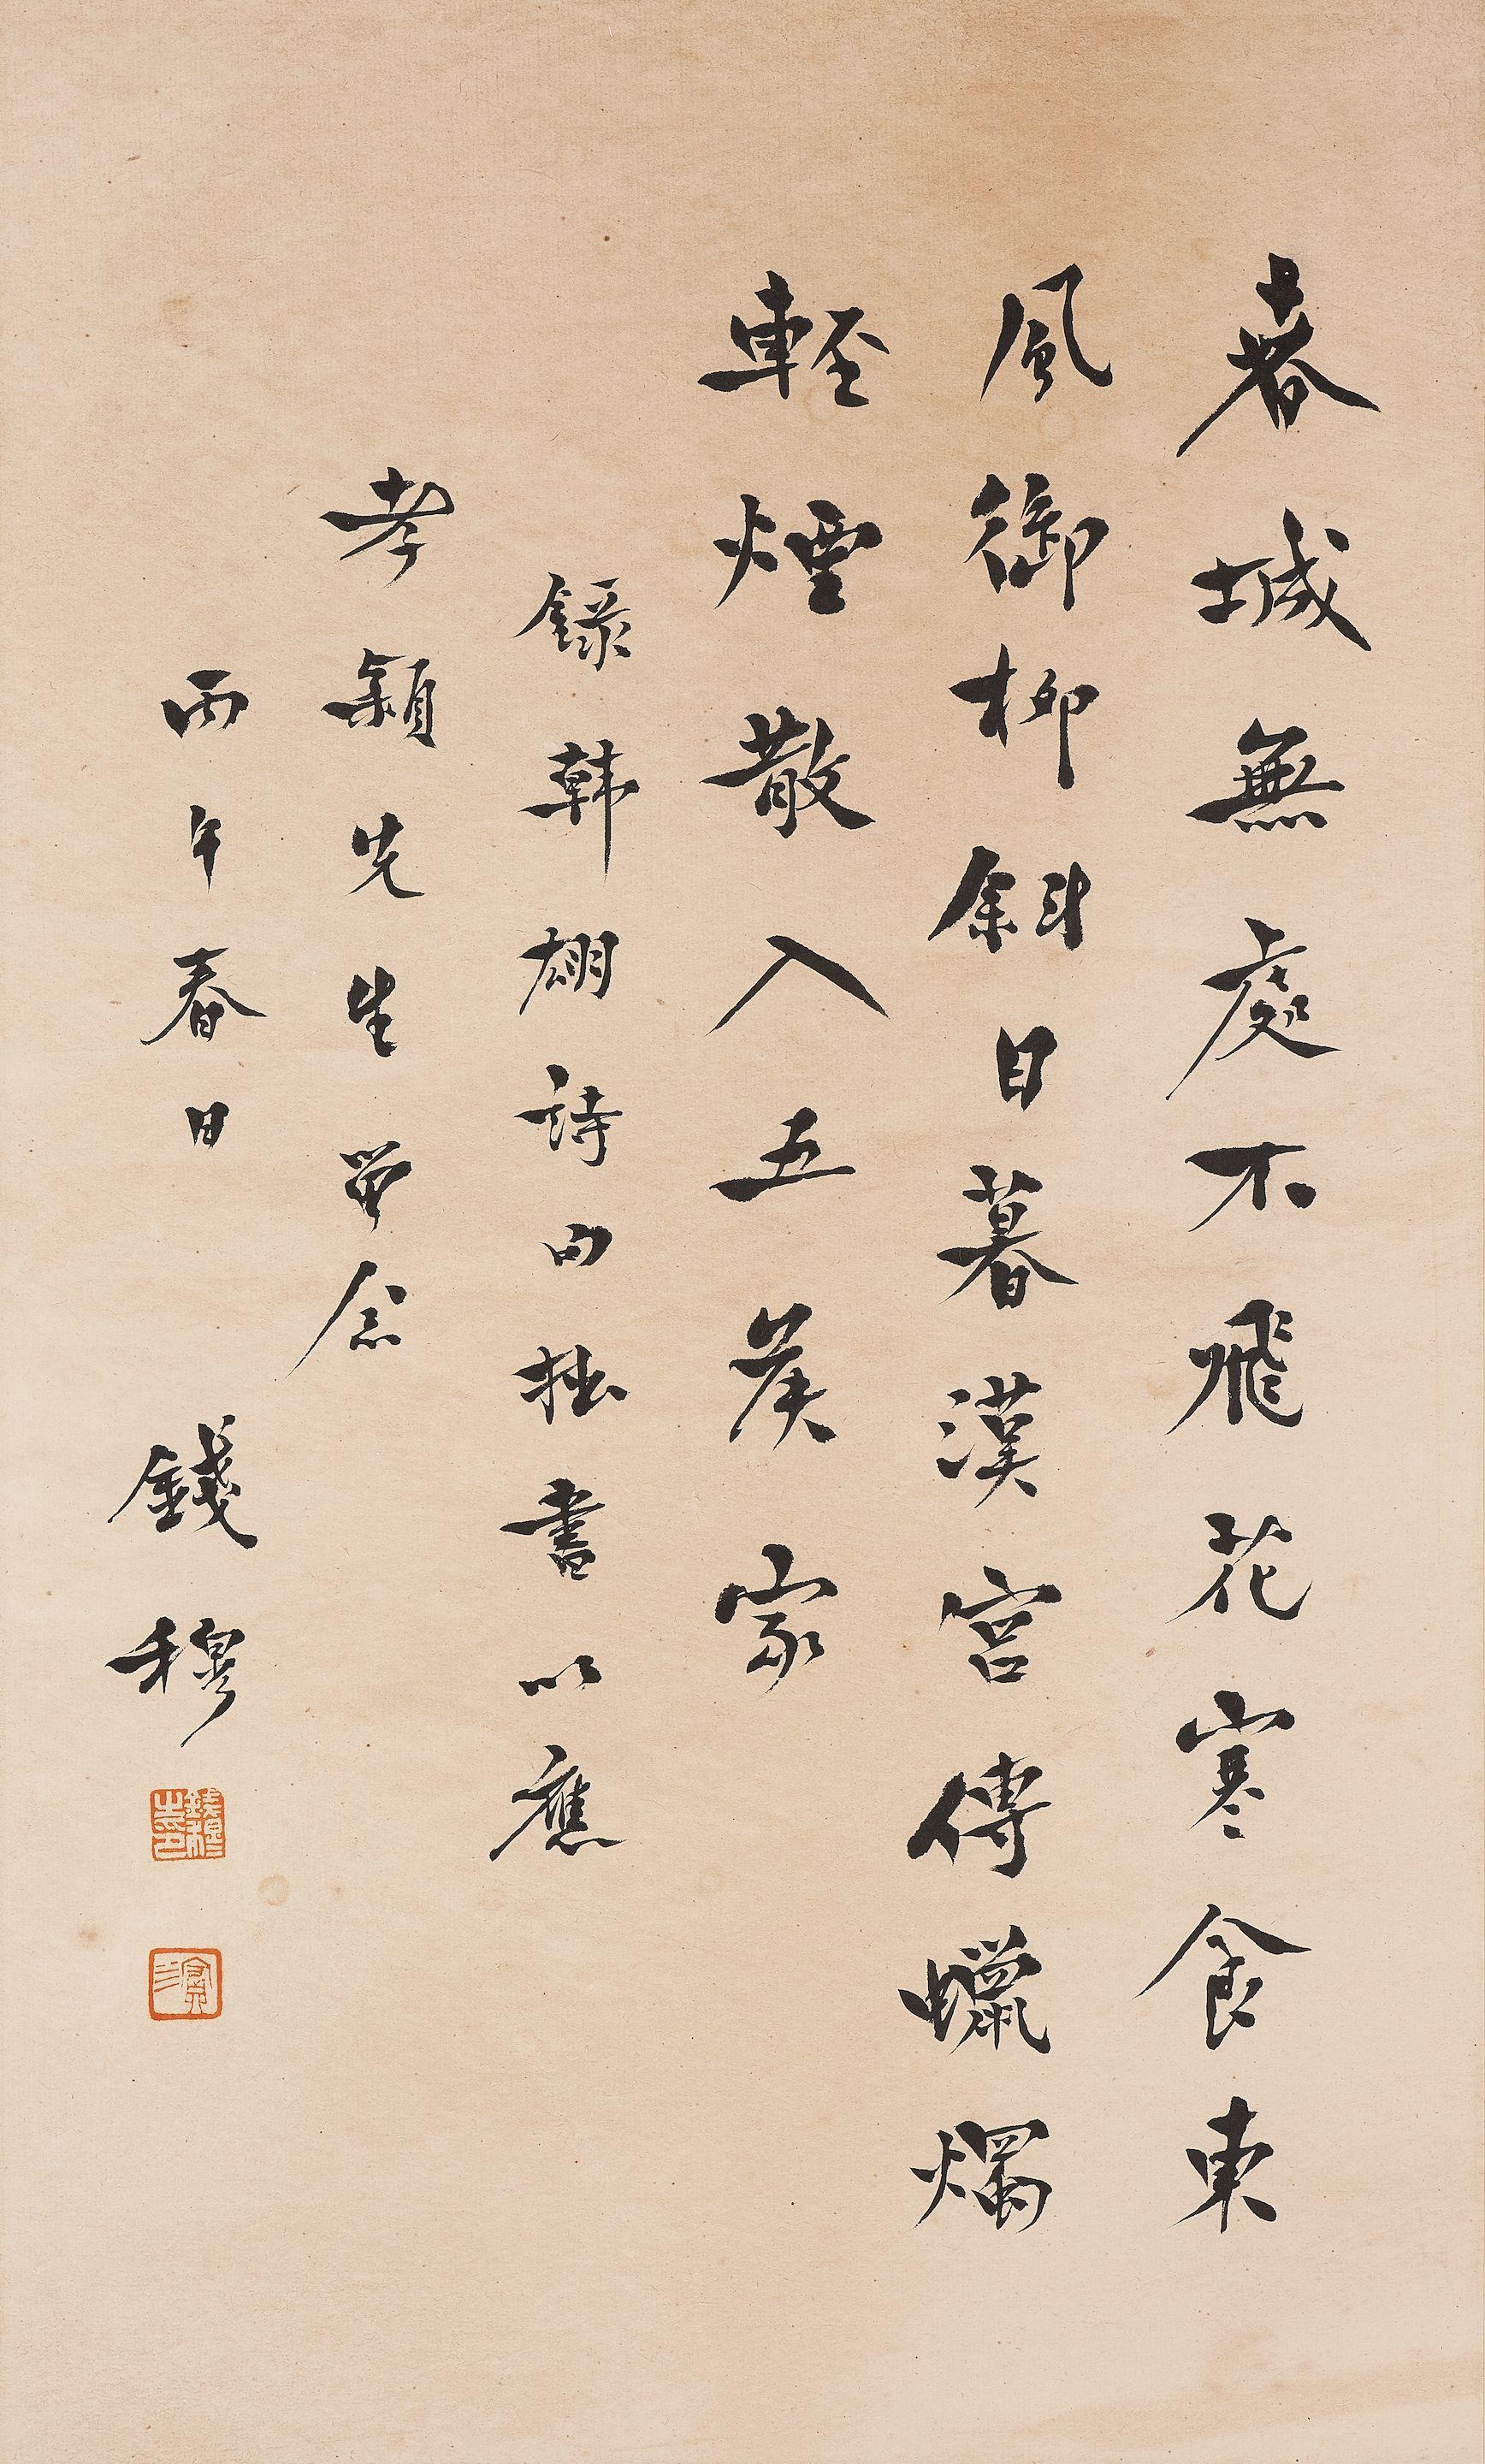 春城無處不飛花寒食東
風御柳斜日暮漢宮傳蠟燭
輕煙散入五侯家
錄韓翃詩由拙書以應
孝潁先生留念
丙午春日
錢穆
錢穆之印